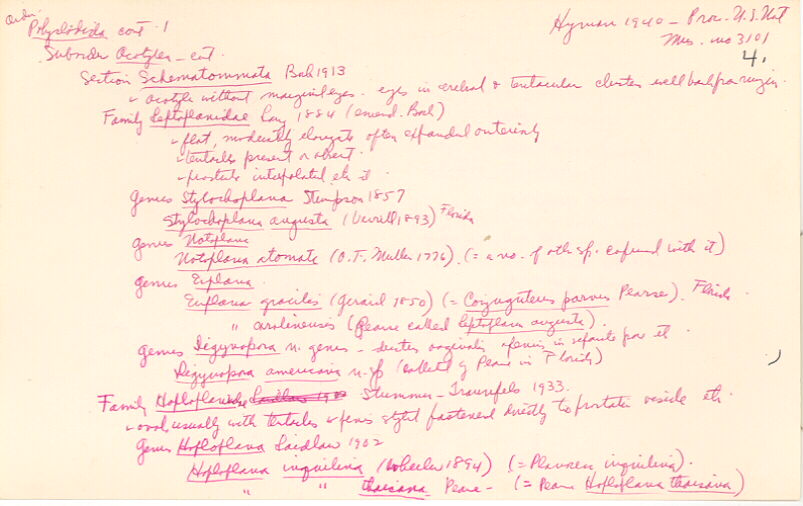 Order
Polycladida cont. 1
Hyman 1940 - Proc. U.S. Nat
Mus. no 3101
4.
Suborder Acotylea - cont.
Section Schematommata Bock 1913
- acotyle without marginal eyes - eyes in cerebral & tentacular clusters well back from margin.
Family Leptoplanidae Lang 1884 (emend. Bock)
- flat, moderately elongate often expanded anteriorly
- tentacles present or absent.
- prostate interpolated, etc
Genus Stylochoplana Stimpson 1857
Stylochoplana angusta (Verrill 1893) Florida
genus Notoplana
Notoplana atomata (O.F. Muller 1776). (= a no. of oth sp. confused with it)
genus Euplana.
Euplana gracilis (Girard 1850) (= Conjuguterus parvus Pearse). Florida
" carolinensis (Pearse called leptoplana angusta).
genus Digynopora n. genus - ductus vaginalis opening in separate pore etc.
Digynopora americana n. sp (collected by Pearse in Florida)
Family Hoploplanidae Laidlaw 1902 Stummer-Traunfels 1933.
- oval, usually with tentacles - penis stylet fastened directly to prostatic vesicle etc.
Genus Hoploplana Laidlaw 1902
Hoploplana inquilina (Wheeler 1894) (= Planocera inquilina).
" " thaisana Pearse - (= Pearse Hoploplana thaisana)